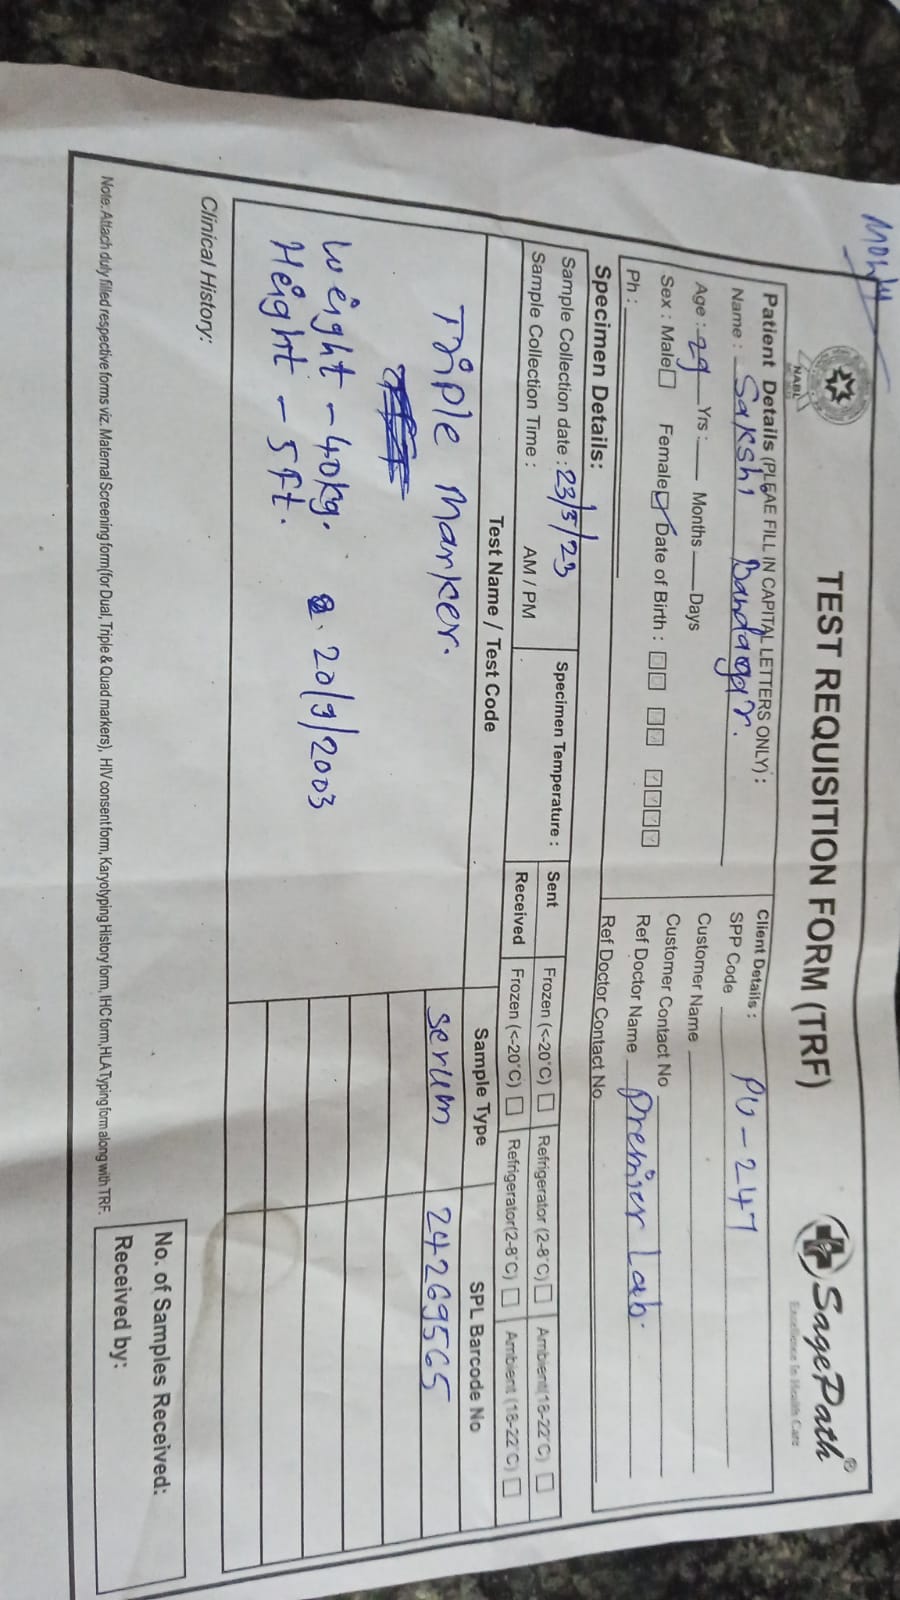 TEST REQUISITION FORM (TRF)
NABL
SagePath®
Excellence In Health Care
Patient Details (PLEAE FILL IN CAPITAL LETTERS ONLY) :
Name : Sakshi Bandagar.
Age : 29 Yrs : Months Days
Sex : Male Female Date of Birth :
Ph :
Client Details :
SPP Code PU-247
Customer Name
Customer Contact No
Ref Doctor Name Premier Lab.
Ref Doctor Contact No.
Specimen Details:
Sample Collection date : 23/5/23
Sample Collection Time : AM / PM
Specimen Temperature :
Sent Frozen (<-20°C) Refrigerator (2-8°C) Ambient(18-22°C)
Received Frozen (<-20°C) Refrigerator(2-8°C) Ambient (18-22°C)
Test Name / Test Code Sample Type SPL Barcode No
Triple Marker. serum 24269565
Weight - 40kg. 20/9/2003
Height - 5ft.
Clinical History:
No. of Samples Received:
Received by:
Note: Attach duly filled respective forms viz. Maternal Screening form(for Dual, Triple & Quad markers), HIV consent form, Karyotyping History form, IHC form, HLA Typing form along with TRF.